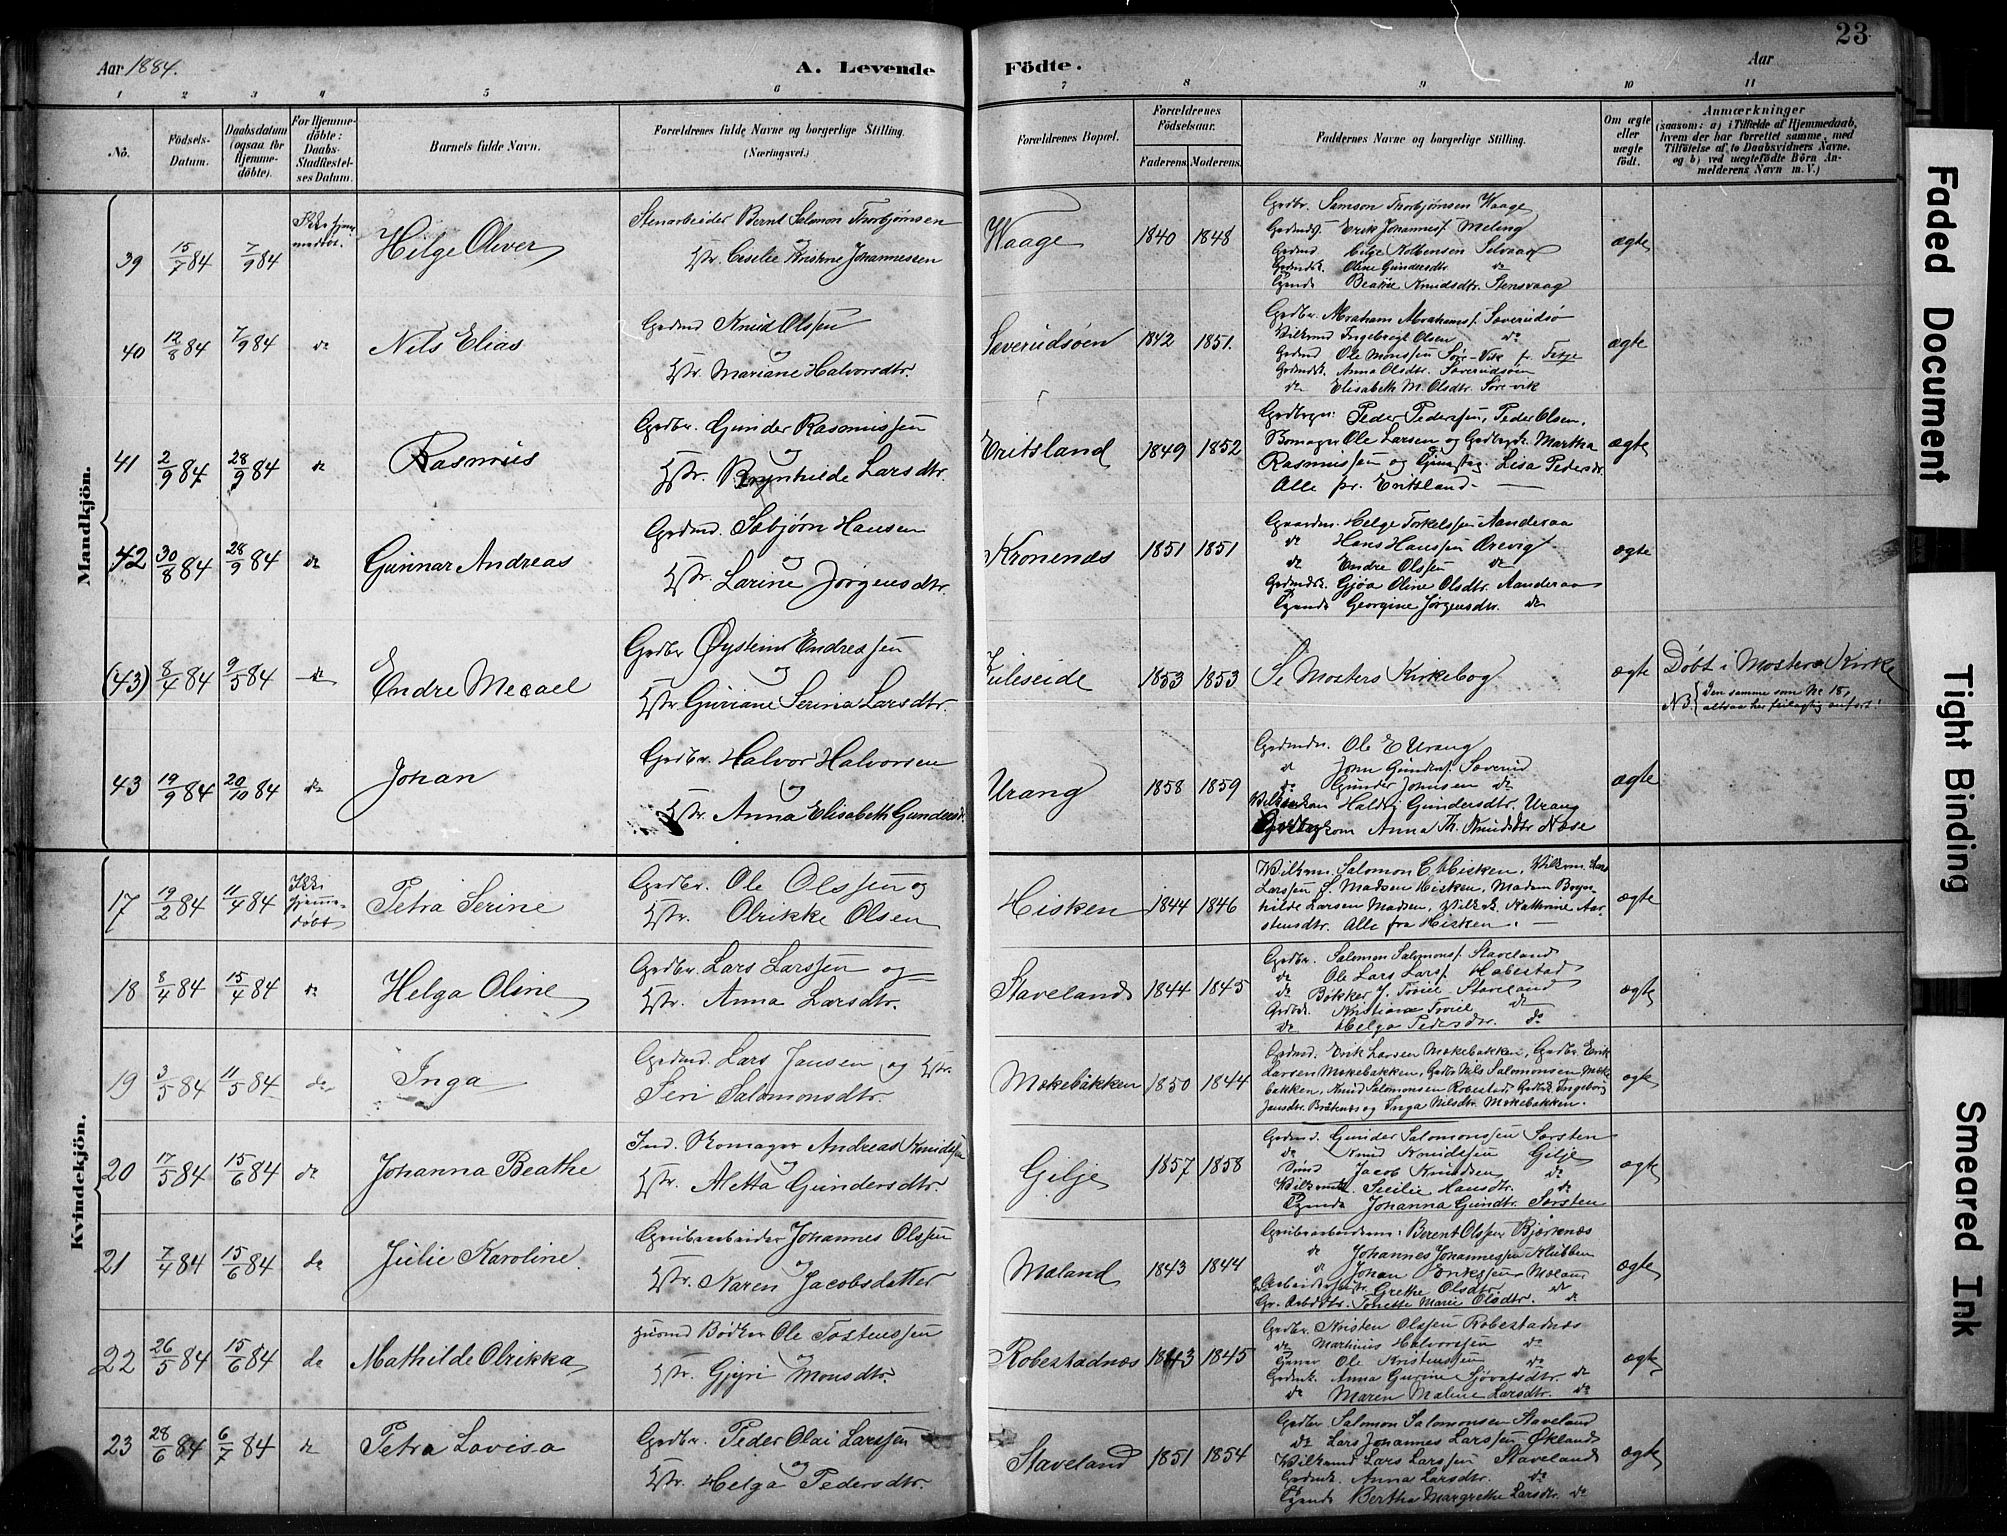 23
Aar 1884.
A. Levende
Födte.
Aar
1 2 3 4 5 6 7 8 9 10 11
No.
Födsels-Datum.
Daabsdatum (ogsaa for Hjemme-döbte).
For Hjemme-döbte: Daabs-Stadfæstel-ses Datum.
Barnets fulde Navn.
Forældrenes fulde Navne og borgerlige Stilling.
(Næringsvei.)
Forældrenes Bopæl.
Forældrenes Födselsaar.
Faderens. Moderens.
Faddernes Navne og borgerlige Stilling.
Om ægte eller uægte födt.
Anmærkninger
(saasom: a) i Tilfælde af Hjemmedaab, hvem der har forrettet samme, med Tilföielse af to Daabsvidners Navne. og b) ved uægtefödte Börn An-melderens Navn m. V.)
Mandkjön.
39 15/7 84 7/9 84 Helge Oliver
Stenarbeider Bernt Salomon Thorbjørnsen
og
Hstr. Cesilie Kristine Johannessen
Waage 1840 1848
Grdbr. Samson Thorbjørnsen Waage
Grdmd. Erik Johannesf. Meling
Grdmd Helge Kolbensen Selvaag
Grdmdk. Oline Gundersdtr. do
Pgende Beathe Knudsdtr. Stensvaag
ægte
40 12/8 84 7/9 84 do Nils Elias
Grdmd Knud Olssen
og
Hstr. Mariane Halvorsdtr.
Sæverudsøen 1842 1851.
Grdbr. Abraham Abrahamsf. Sæverudsø
Ingebregt Olsen do
Grdmd Ole Monssen Sør-Vik pr. Fitje
Grdmdk. Anna Olsdtr. Sæverudsøen
do Elisabeth M. Olsdtr. Sørevik
ægte
41 2/9 84 28/9 84 do Rasmus
Grdbr. Gunder Rasmussen
og
Hstr. Brynhilde Larsdtr.
Eritsland 1849 1852
Peder Pedersen, Peder Olsen,
Ole Larsen og Martha
Rasmussen og Lisa Pedersdtr.
Alle pr. Eritsland.
ægte
42 30/8 84 28/9 84 do Gunnar Andreas
Grdmd. Sæbjørn Hansen
og
Hstr. Larine Jørgensdtr.
Kronenes 1851 1851
Helge Torkelssen Aanderaa
do Hans Hanssen Arevig
do Endre Olssen do
Grdmdk. Gjøa Oline Olsdtr. Aanderaa
Pgende Georgine Jørgensdtr. do
ægte
(43) 8/4 84 9/5 84 do Endre Mecael
Grdbr Øystein Endressen
og
Hstr Guriane Serina Larsdtr.
Kuleseide 1853 1853 Se Mosters Kirkebog ægte
Døbt i Mosters Kirke
NB. Den samme som No 18,
altsaa her feilagtig anført!
43 19/9 84 20/10 84 do Johan
Grdbr. Halvor Halvorsen
og
Hstr. Anna Elisabeth Gundersd.
Urang 1858 1859
Grdmdr. Ole E Urang
do John Gundersf. Sæverud
do Gunder Johnsen do
Gundersdtr. Urang
Anna Th. Knudsdtr Næse
ægte
Kvindekjön.
17 19/2 84 11/4 84 Ikke hjemme-døbt Petra Serine
Grdbr. Ole Olssen og
Hstr. Olrikke Olsen
Hisken 1844 1846
Salomon C. Hisken,
Larssen S. Madsen Hisken, Madam Bryn-
hilde Larsen Madsen, Kathrine Aar-
stensdtr. Alle fra Hisken.
ægte
18 8/4 84 15/4 84 do Helga Oline
Grdbr. Lars Larssen og
Hstr. Anna Larsdtr.
Staveland 1844 1845
Grdbr. Salomon Salomonsf. Staveland
do Ole Lars Larsf. Habestad
do Staveland
do
do Helga Pedersdtr. do
ægte
19 3/5 84 11/5 84 do Inga
Grdmd. Lars Jansen og Hstr.
Seri Salomonsdtr.
Mækebakken 1850 1844
Grdmd. Erik Larsen Mækebakken, Grdbr. Erik
Larsen Mækebakken, Nils Salomonsen Mæke-
bakken, Knud Salomonsen Robestad, Ingeborg
Jansdtr. og Inga Nilsdtr. Mækebakken.
ægte
20 17/5 84 15/6 84 do Johanna Beathe
Ind. Komager Andreas Knudssen
og
Hstr. Aletta Gundersdtr.
Gilje 1857 1858
Grdmd. Gunder Salomonssen Sørsten
do Knud Knudssen Gilje
Jacob Knudssen do
Sicilie Hansdtr. do
Pgende Johanna Gundtr. Sørsten
ægte
21 7/4 84 15/6 84 do Julie Karoline.
Grubearbeider Johannes Olssen
og
Hstr. Karen Jacobsdatter
Mæland 1843 1844
Grubearbeiderne: Berent Olssen Bjørknæs
do Johannes Johannessen Klubben
do Johan Erikssen Mæland
Grethe Olsdtr. do
Tonette Marie Olsdtr. do
ægte
22 26/5 84 15/6 84 do Mathilde Olrikka
Husmd Bødker Ole Tostenssen
og
Hstr. Gjyri Monsdtr.
Robestadnæs 1843 1845
Grdbr. Kristen Olssen Robestadnæs
do Martinus Halvorssen do
Ole Kristenssen do
Grdmk. Anna Gurine Sjovatsdtr. do
do Maren Malene Larsdtr. do
ægte
23 28/6 84 6/7 84 do Petra Lovisa
Grdbr. Peder Olai Larssen
og
Hstr. Helga Pedersdtr.
Staveland 1851 1854
Grdbr. Salomon Salomonsen Staveland
do Lars Johannes Larssen Økland
Lars Larssen Staveland
Grdmk. Anna Larsdtr. do
Pgende Bertha Margrethe Larsdtr. do
ægte
Faded Document
Tight Binding
Smeared Ink